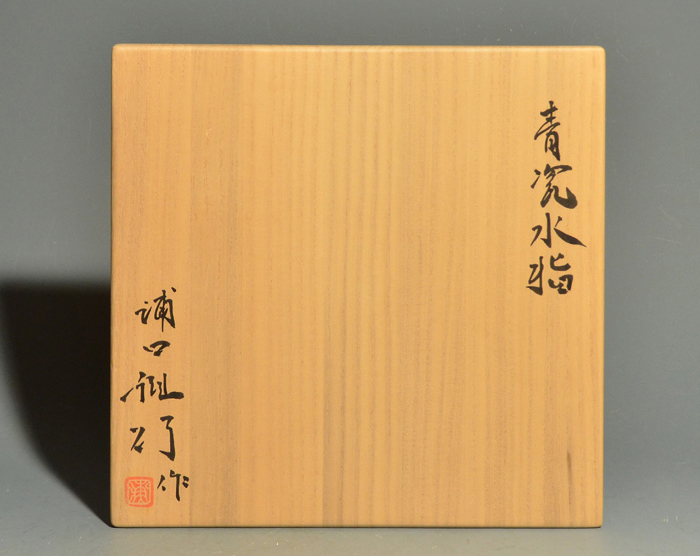 青瓷水指
浦口雅行作